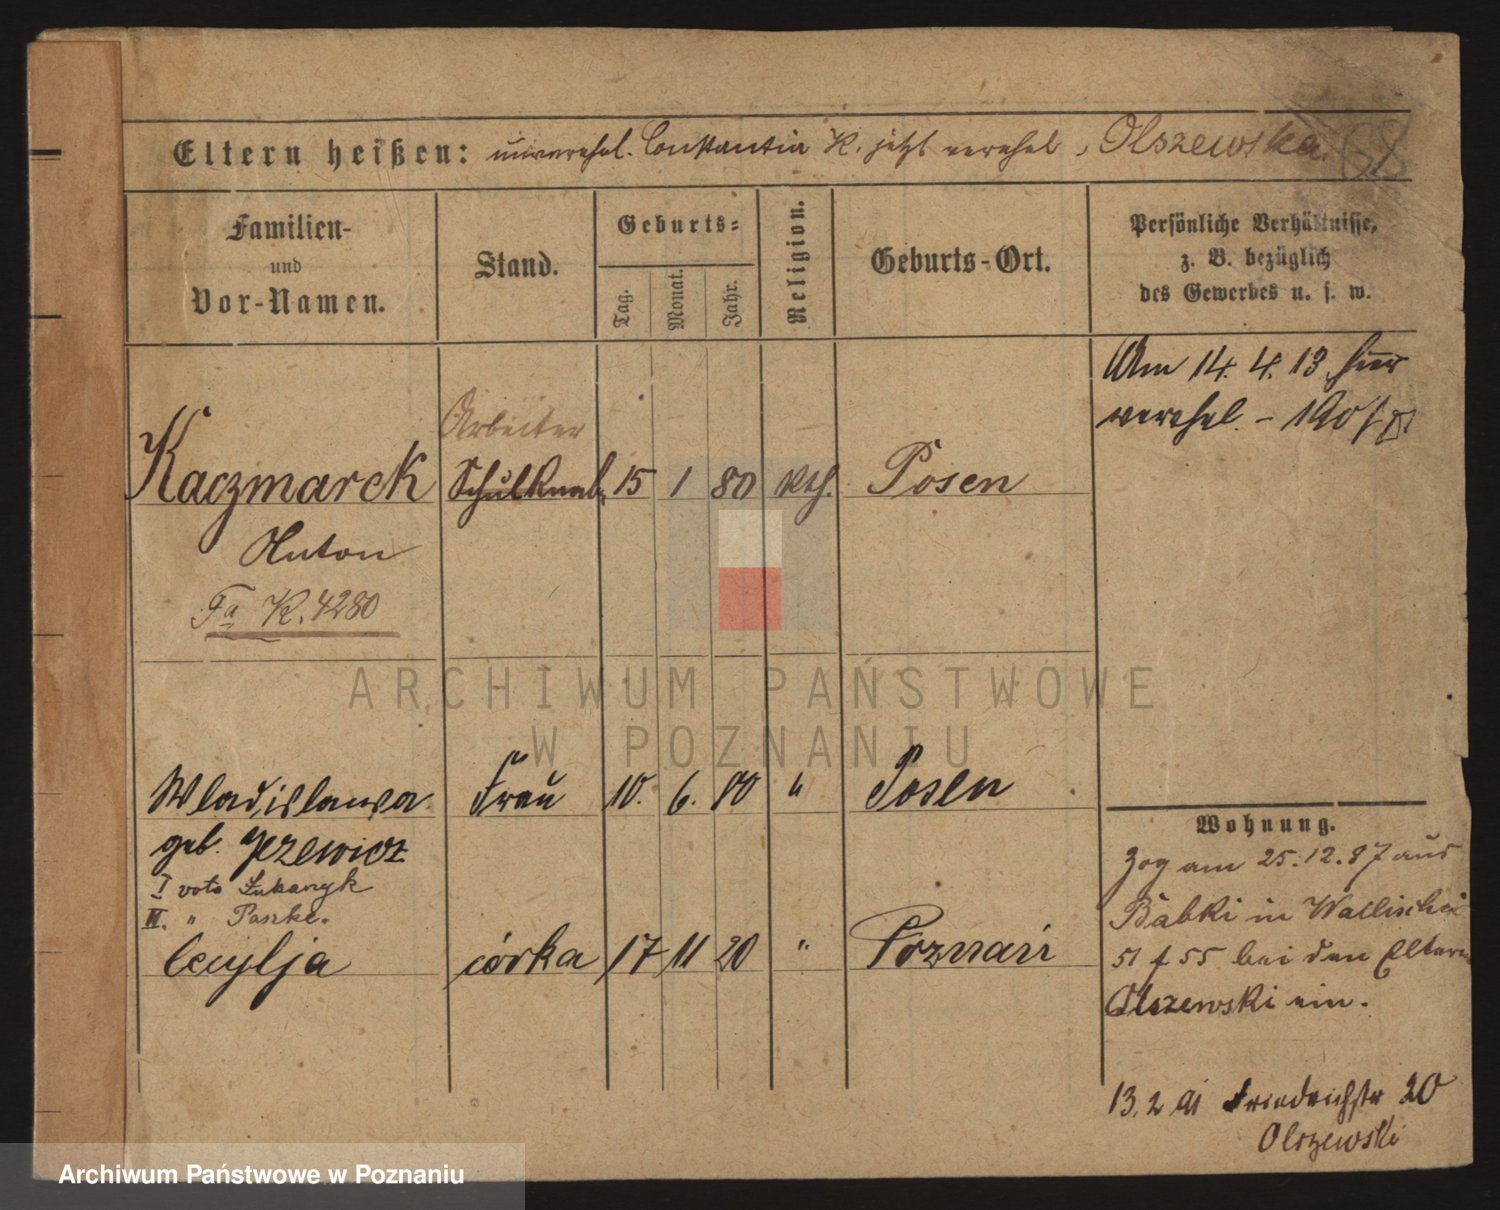 Eltern heißen: unverehel. Constantia K. jetzt verehel. Olszewska
Familien-
und
Vor-Namen.
Stand.
Geburts-
Tag.
Monat.
Jahr.
Religion.
Geburts-Ort.
Persönliche Verhältnisse,
z. B. bezüglich
des Gewerbes u. s. w.
Am 14. 4. 13 hier
verehel. -
Arbeiter
Kaczmarek Schulknabe 15 1 80 kth. Posen
Anton
Fa K. 4280
ARCHIWUM PAŃSTWOWE
W POZNANIU
Wladislawa Frau 10. 6. 80 " Posen
geb. Jezewicz
I voto Lukanyk
II. " Paszke.
Cecylja córka 17 11 20 " Poznań
Wohnung.
Zog am 25. 12. 87 aus
Babki in Wallischei
51 f 55 bei den Eltern
Olszewski ein.
13. 2 91 Friedrichstr 20
Olszewski
Archiwum Państwowe w Poznaniu